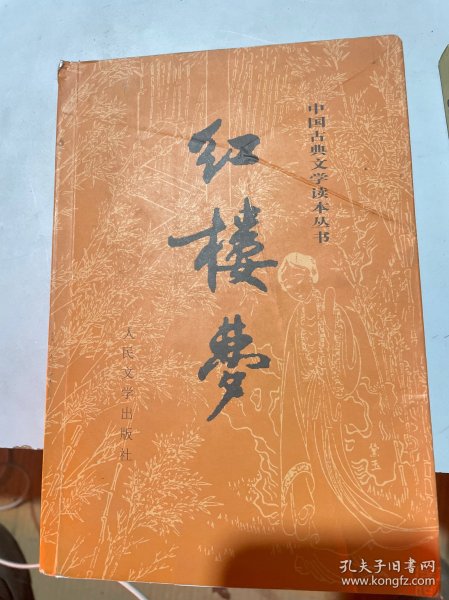 中国古典文学读本丛书
红楼梦
人民文学出版社
孔夫子旧书网
www.kongfz.com